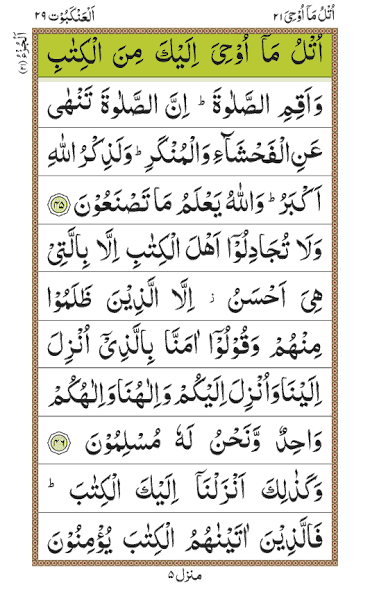 اُتْلُ مَاۤ اُوْحِیَ ۲۱
اَلْعَنْكَبُوْت ۲۹
اَلْجُزْءُ (۲۱)
اُتْلُ مَاۤ اُوْحِیَ اِلَیْكَ مِنَ الْكِتٰبِ
وَاَقِمِ الصَّلٰوةَ ؕ اِنَّ الصَّلٰوةَ تَنْهٰی
عَنِ الْفَحْشَآءِ وَالْمُنْكَرِ ؕ وَلَذِكْرُ اللّٰهِ
اَكْبَرُ ؕ وَاللّٰهُ یَعْلَمُ مَا تَصْنَعُوْنَ ﴿۴۵﴾
وَلَا تُجَادِلُوْۤا اَهْلَ الْكِتٰبِ اِلَّا بِالَّتِیْ
هِیَ اَحْسَنُ ۖ اِلَّا الَّذِیْنَ ظَلَمُوْا
مِنْهُمْ وَقُوْلُوْۤا اٰمَنَّا بِالَّذِیْۤ اُنْزِلَ
اِلَیْنَا وَاُنْزِلَ اِلَیْكُمْ وَاِلٰهُنَا وَاِلٰهُكُمْ
وَاحِدٌ وَّنَحْنُ لَهٗ مُسْلِمُوْنَ ﴿۴۶﴾
وَكَذٰلِكَ اَنْزَلْنَاۤ اِلَیْكَ الْكِتٰبَ ؕ
فَالَّذِیْنَ اٰتَیْنٰهُمُ الْكِتٰبَ یُؤْمِنُوْنَ
منزل ۵